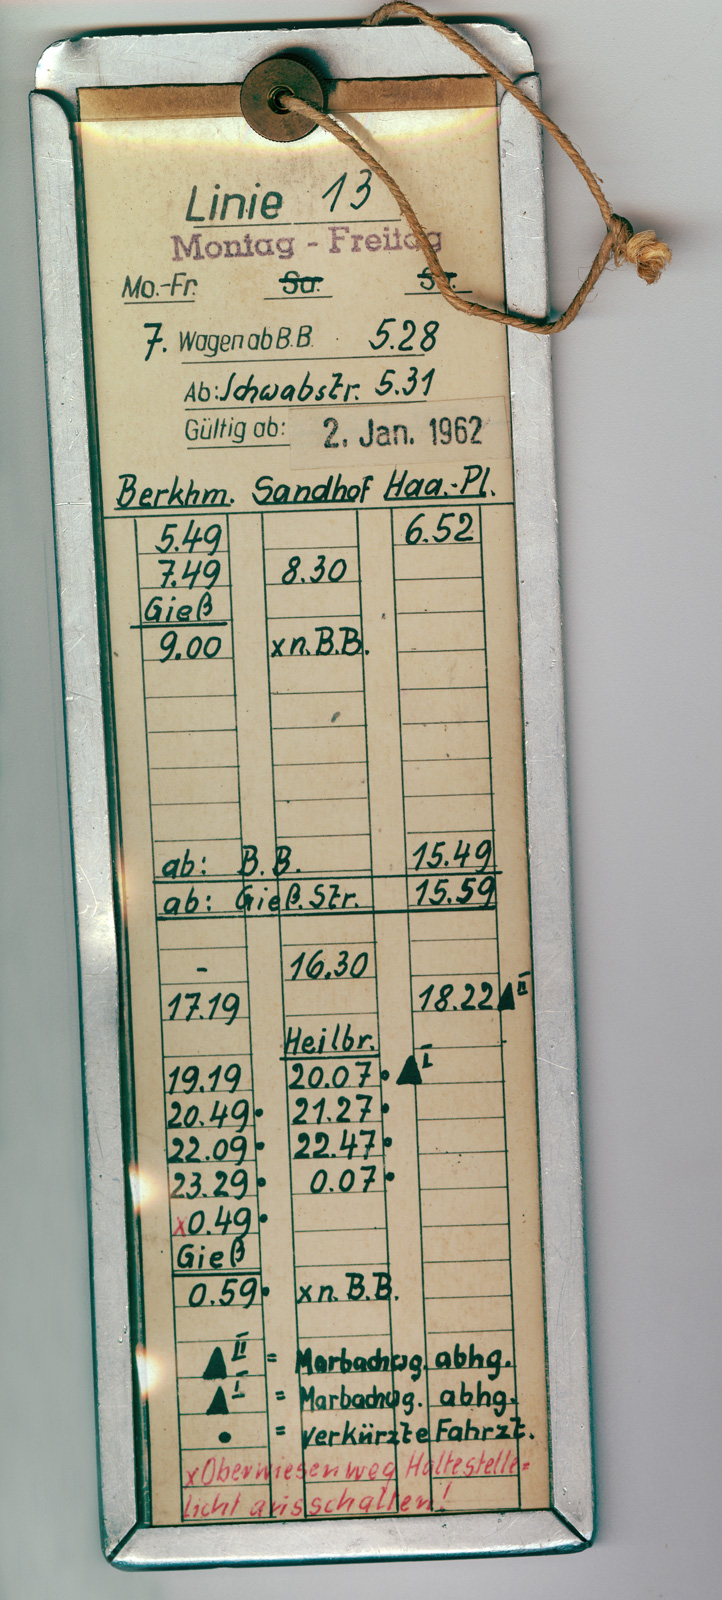 Linie 13
Montag - Freitag
Mo.-Fr. Sa. So.
7. Wagen ab B.B. 5.28
Ab: Schwabstr. 5.31
Gültig ab: 2. Jan. 1962
Berkhm. Sandhof Haa.-Pl.
5.49 6.52
7.49 8.30
Gieß
9.00 x n. B.B.
ab: B.B. 15.49
ab: Gieß.Str. 15.59
- 16.30
17.19 18.22 ▲II
Heilbr.
19.19 20.07• ▲I
20.49• 21.27•
22.09• 22.47•
23.29• 0.07•
x0.49•
Gieß
0.59• x n. B.B.
▲II = Marbachwg. abhg.
▲I = Marbachwg. abhg.
• = verkürzte Fahrzt.
x Oberwiesenweg Haltestelle=
licht ausschalten!